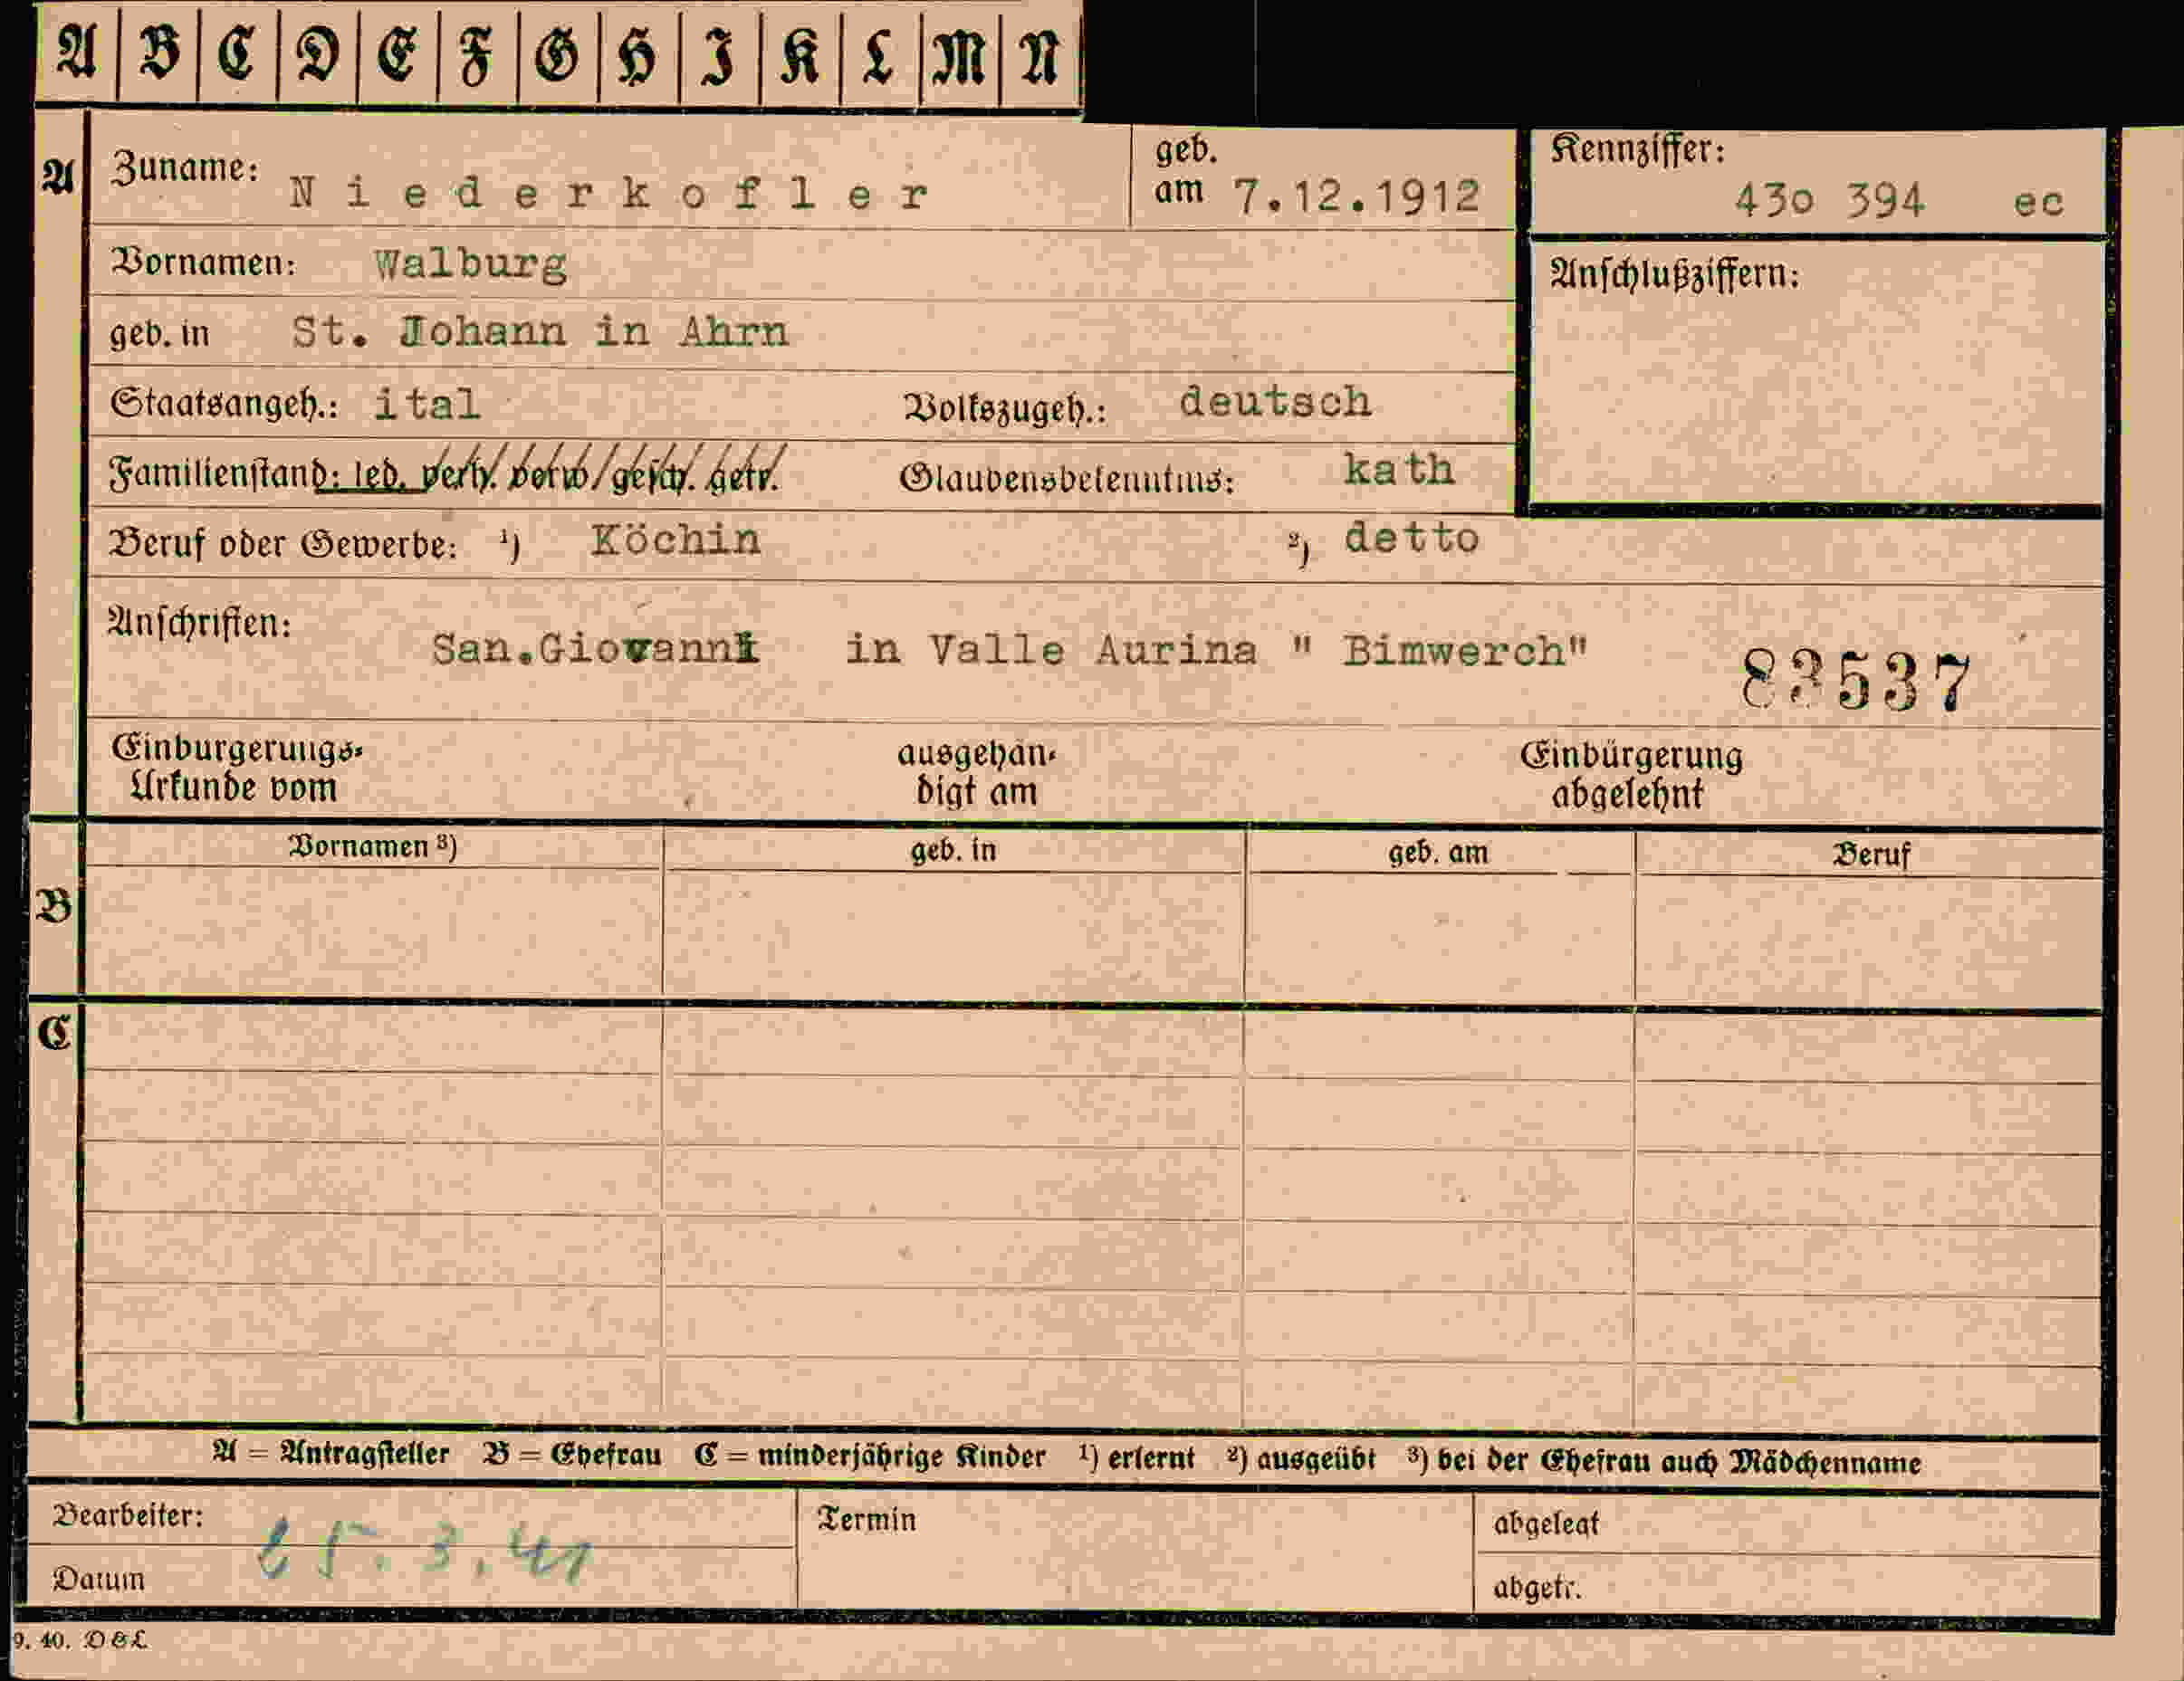 A B C D E F G H I K L M N
A Zuname: Niederkofler geb. am 7.12.1912 Kennziffer: 43o 394 ec
Vornamen: Walburg Anschlußziffern:
geb. in St. Johann in Ahrn
Staatsangeh.: ital Volkszugeh.: deutsch
Familienstand: led. verh. verw. gesch. getr. Glaubensbekenntnis: kath
Beruf oder Gewerbe: ¹) Köchin ²) detto
Anschriften: San.Giovanni in Valle Aurina " Bimwerch" 83537
Einbürgerungs- ausgehän- Einbürgerung
Urkunde vom digt am abgelehnt
Vornamen ³) geb. in geb. am Beruf
B
C
A = Antragsteller B = Ehefrau C = minderjährige Kinder ¹) erlernt ²) ausgeübt ³) bei der Ehefrau auch Mädchenname
Bearbeiter: Termin abgelegt
Datum 25.3.41 abgetr.
9. 40. D & L